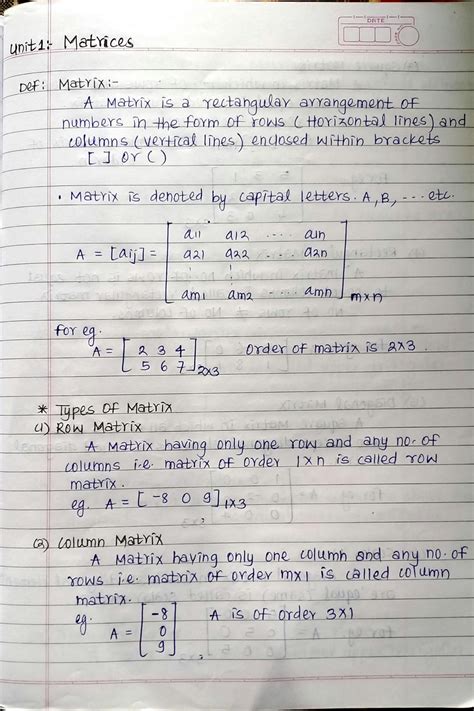 DATE
Unit 1:- Matrices
Def: Matrix:-
A Matrix is a rectangular arrangement of
numbers in the form of rows (Horizontal lines) and
columns (vertical lines) enclosed within brackets
[ ] or ( )
• Matrix is denoted by capital letters. A, B, --- etc.
a11 a12 ..... a1n
A = [aij] = a21 a22 ..... a2n
am1 am2 ..... amn m×n
for eg.
A = [ 2 3 4 order of matrix is 2×3.
5 6 7 ]2×3
* Types Of Matrix
(1) Row Matrix
A Matrix having only one row and any no. of
columns i.e. matrix of order 1×n is called row
matrix.
eg. A = [ -8 0 9 ]1×3
(2) Column Matrix
A Matrix having only one column and any no. of
rows i.e. matrix of order m×1 is called column
matrix.
eg. -8 A is of order 3×1
A = 0
9